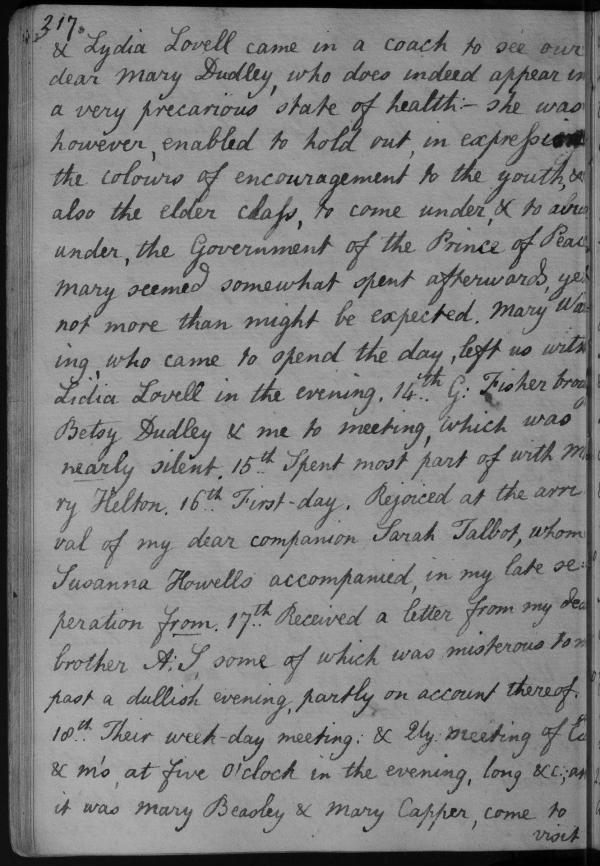 317.
& Lydia Lovell came in a coach to see our
dear Mary Dudley, who does indeed appear in
a very precarious state of health:- she was
however, enabled to hold out, in expression
the colours of encouragement to the youth, &
also the elder class, to come under, & to
under, the Government of the Prince of Peac
Mary seemed somewhat spent afterwards, yet
not more than might be expected. Mary Wa
ing, who came to spend the day, left us with
Lidia Lovell in the evening. 14th G: Fisher brou
Betsy Dudley & me to meeting, which was
nearly silent. 15th Spent most part of with Ma
ry Helton. 16th First-day. Rejoiced at the arri
val of my dear companion Sarah Talbot, whom
Susanna Howells accompanied, in my late se=
peration from. 17th Received a letter from my dea
brother A: S, some of which was misterous to m
past a dullish evening, partly on account thereof.
18th Their week-day meeting: & Qly meeting of
& m's, at five O'clock in the evening, long &c; as
it was Mary Beasley & Mary Capper, come to
visit